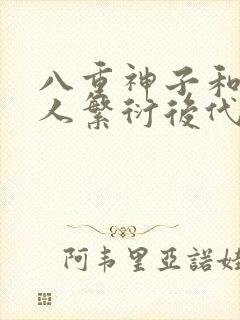 八重神子和
人繁衍後代
阿韦里亞諾娃